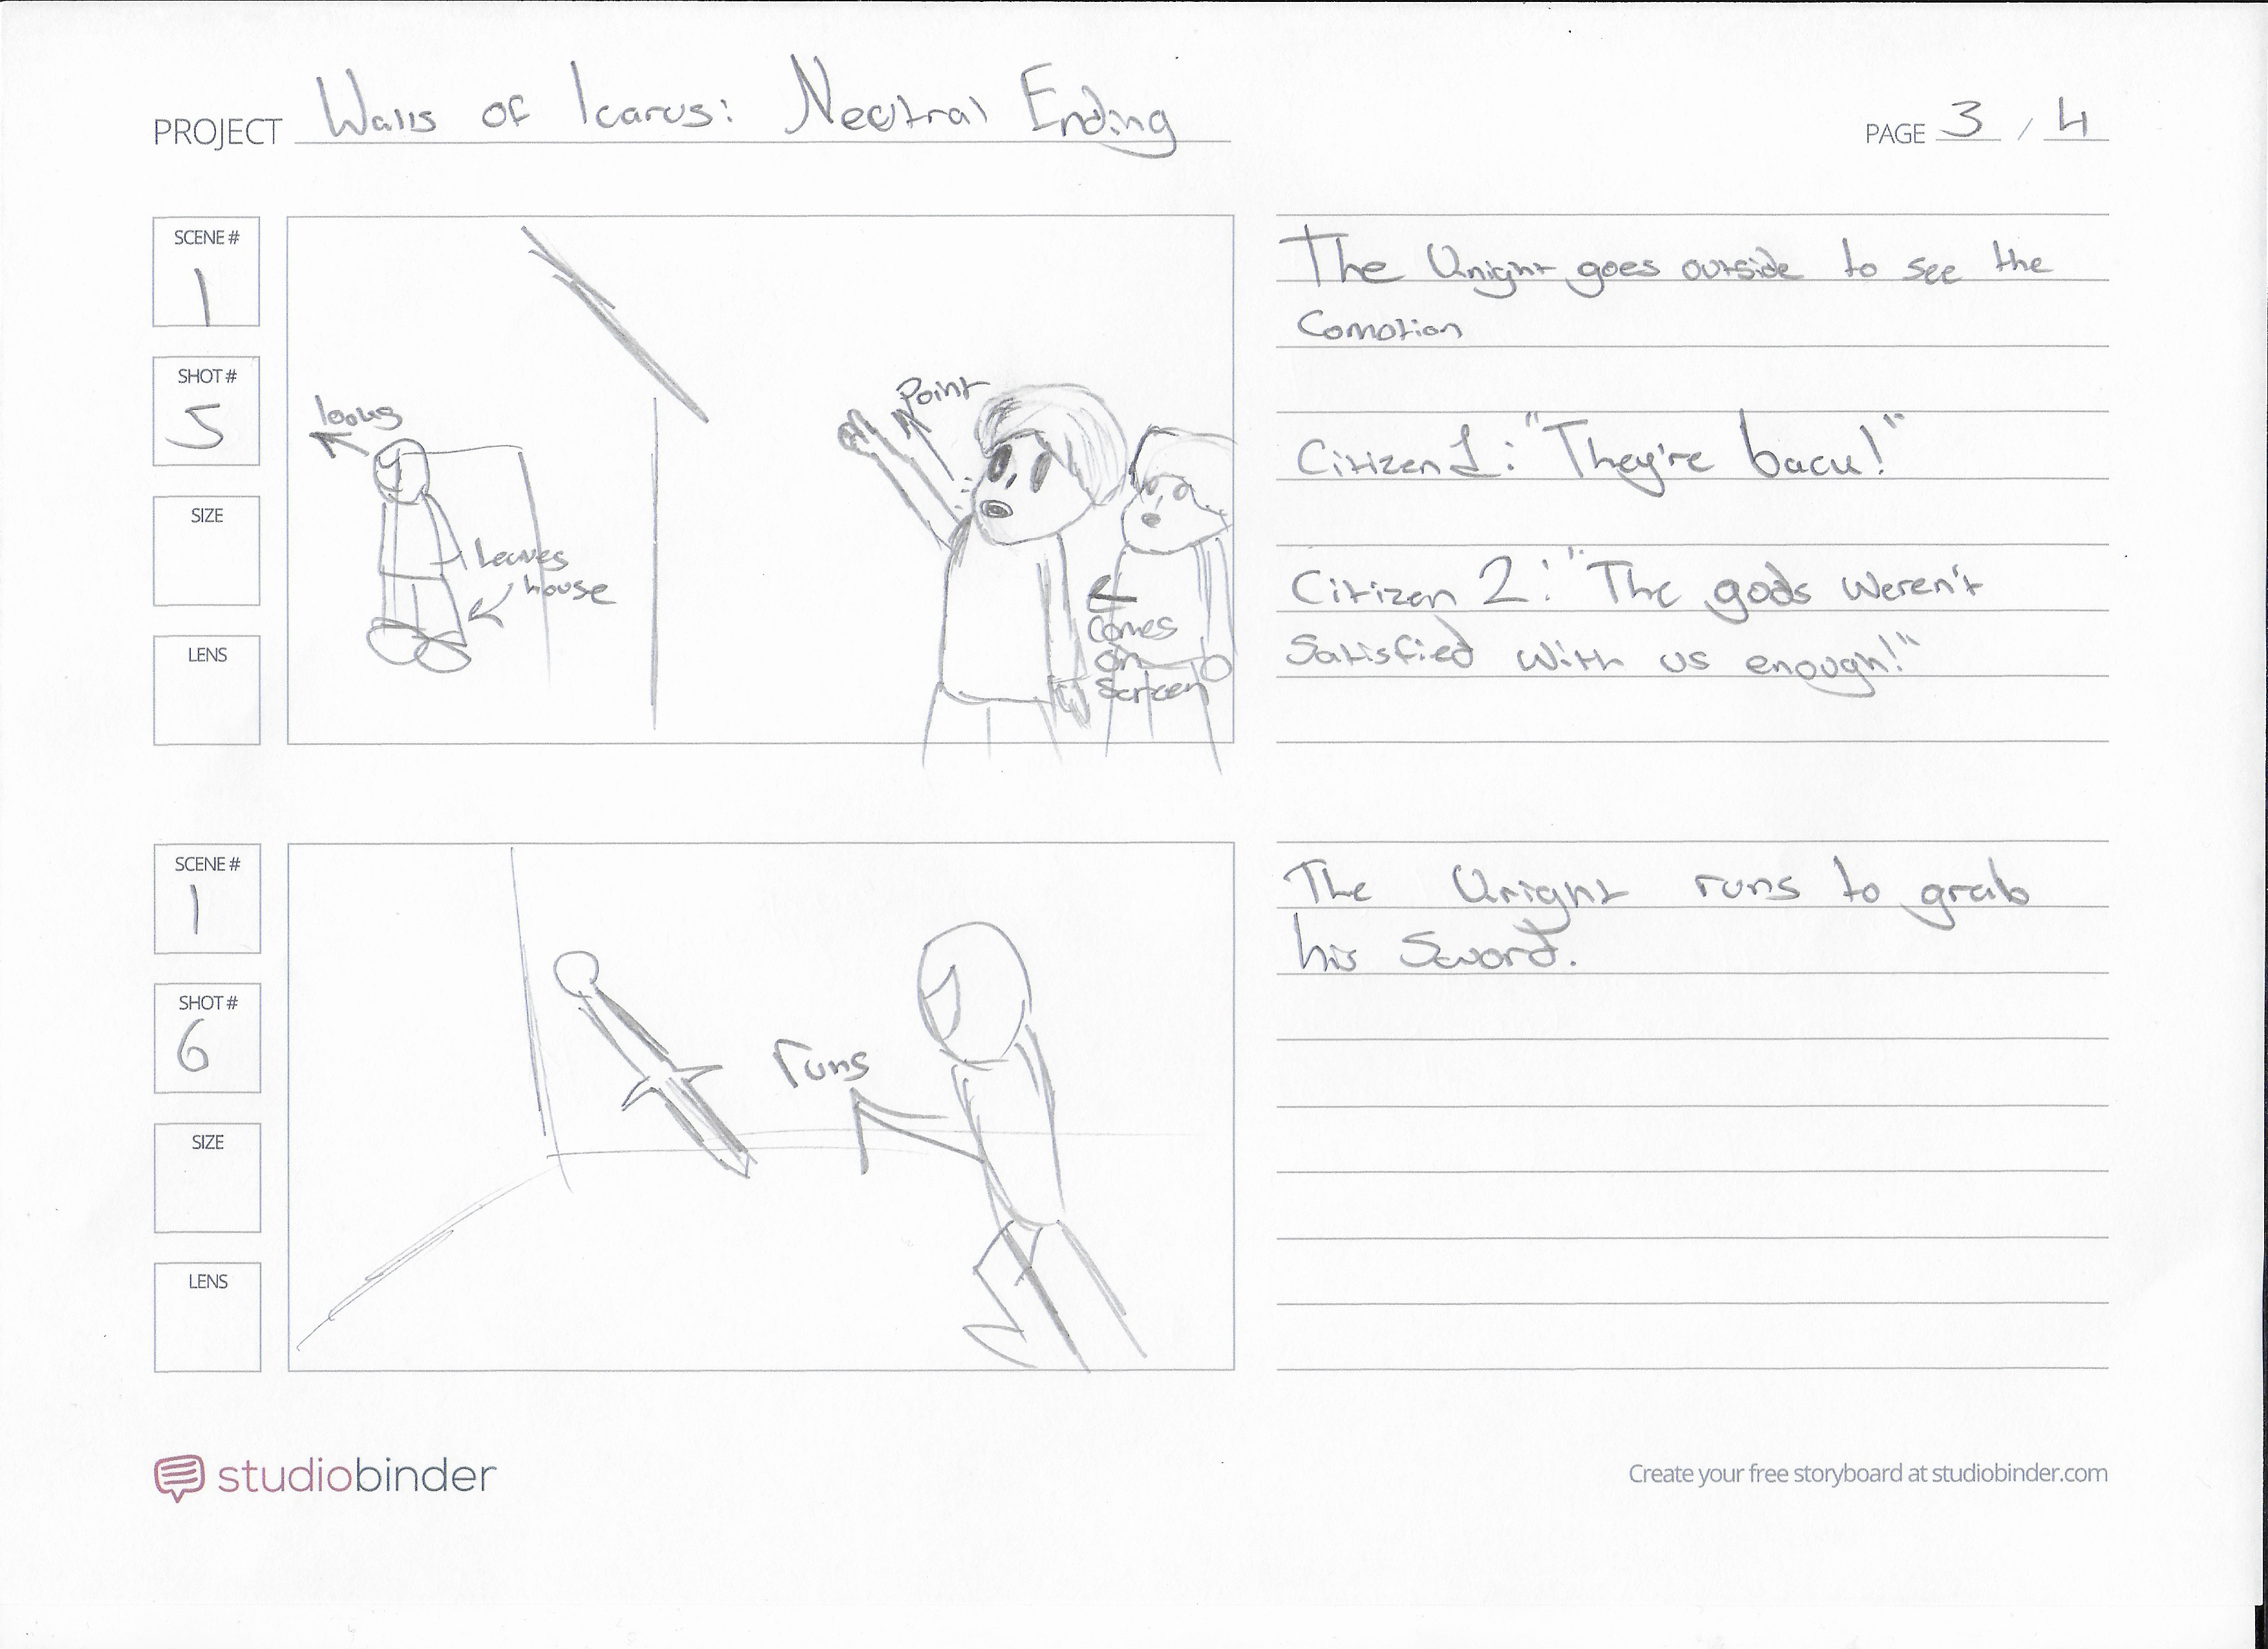 PROJECT Walls of Icarus: Neutral Ending
PAGE 3 / 4
SCENE #
1
SHOT #
5
SIZE
LENS
looks
Leaves
house
Point
Comes
on
Screen
The Knight goes outside to see the
Comotion
Citizen 1: "They're back!"
Citizen 2: "The gods weren't
Satisfied with us enough!"
SCENE #
1
SHOT #
6
SIZE
LENS
runs
The Knight runs to grab
his Sword.
studiobinder
Create your free storyboard at studiobinder.com